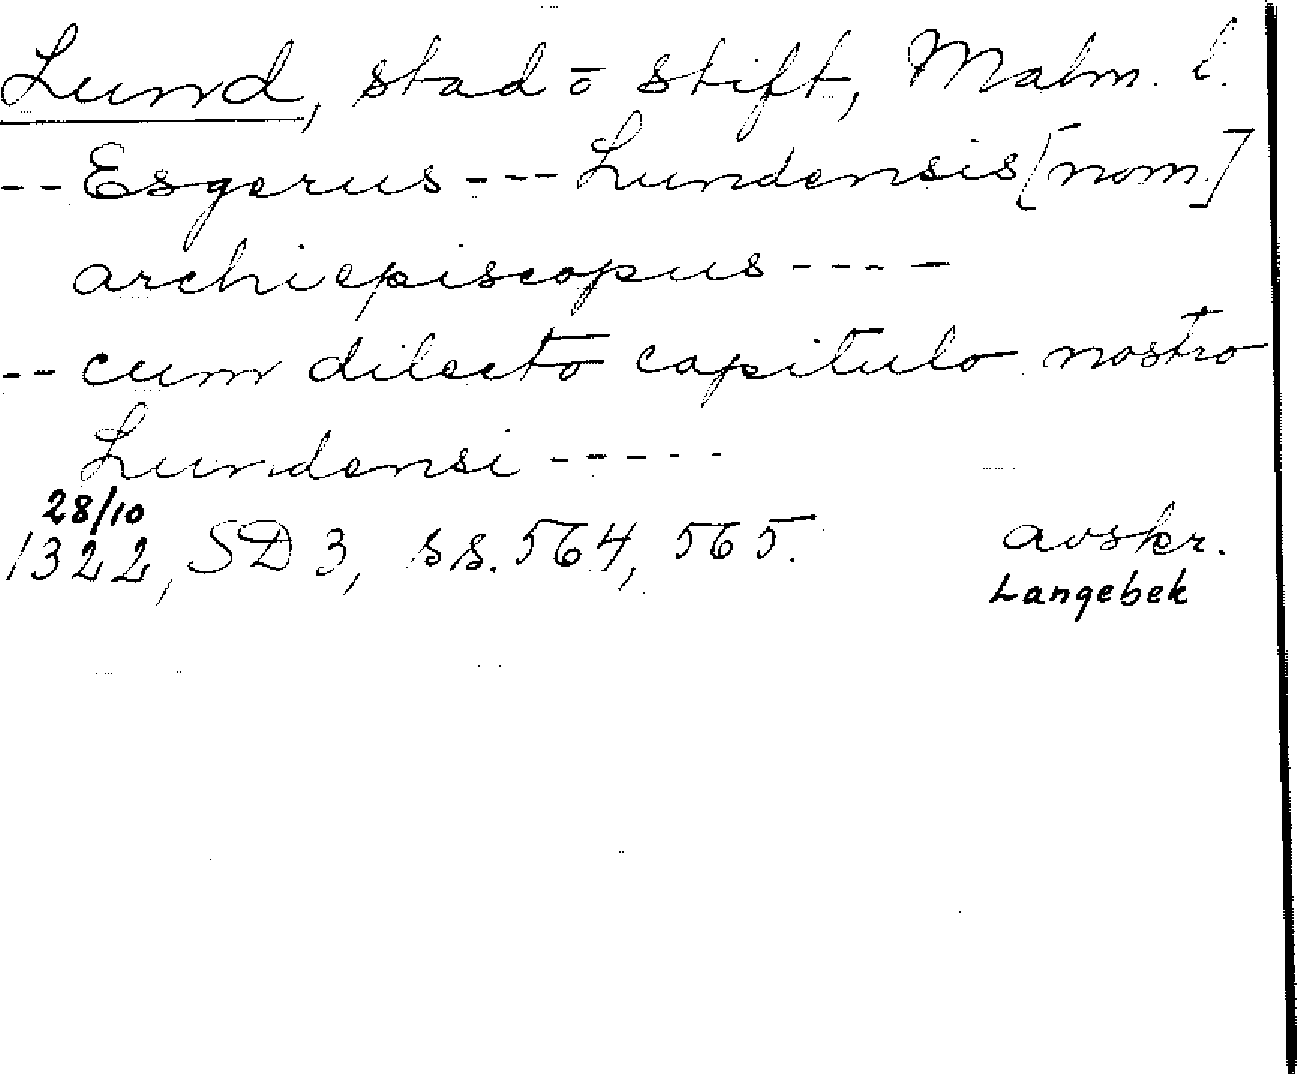 Lund, stad ō stift, Malm. l.
-- Esgerus --- Lundensis [nom.]
archiepiscopus ----
-- cum dilecto capitulo nostro
Lundensi -----
28/10
1322, SD 3, ss. 564, 565. avskr.
Langebek